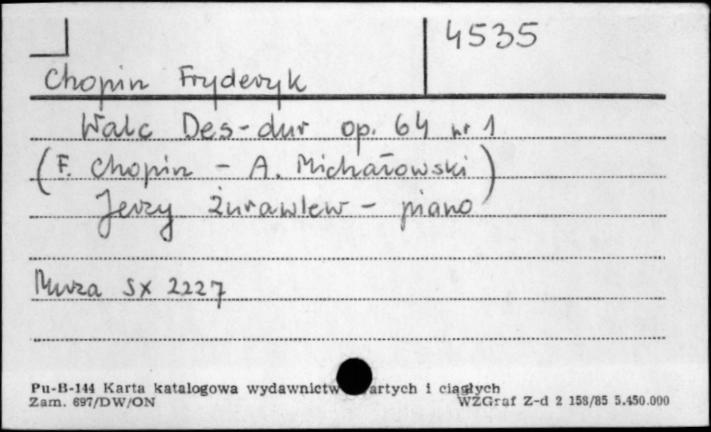 4535
Chopin Fryderyk
Walc Des-dur op. 64 nr 1
(F. Chopin - A. Michałowski)
Jerzy Żurawlew - piano
Muza SX 2227
Pu-B-144 Karta katalogowa wydawnictw artych i ciągłych
Zam. 697/DW/ON WZGraf Z-d 2 158/85 5.450.000